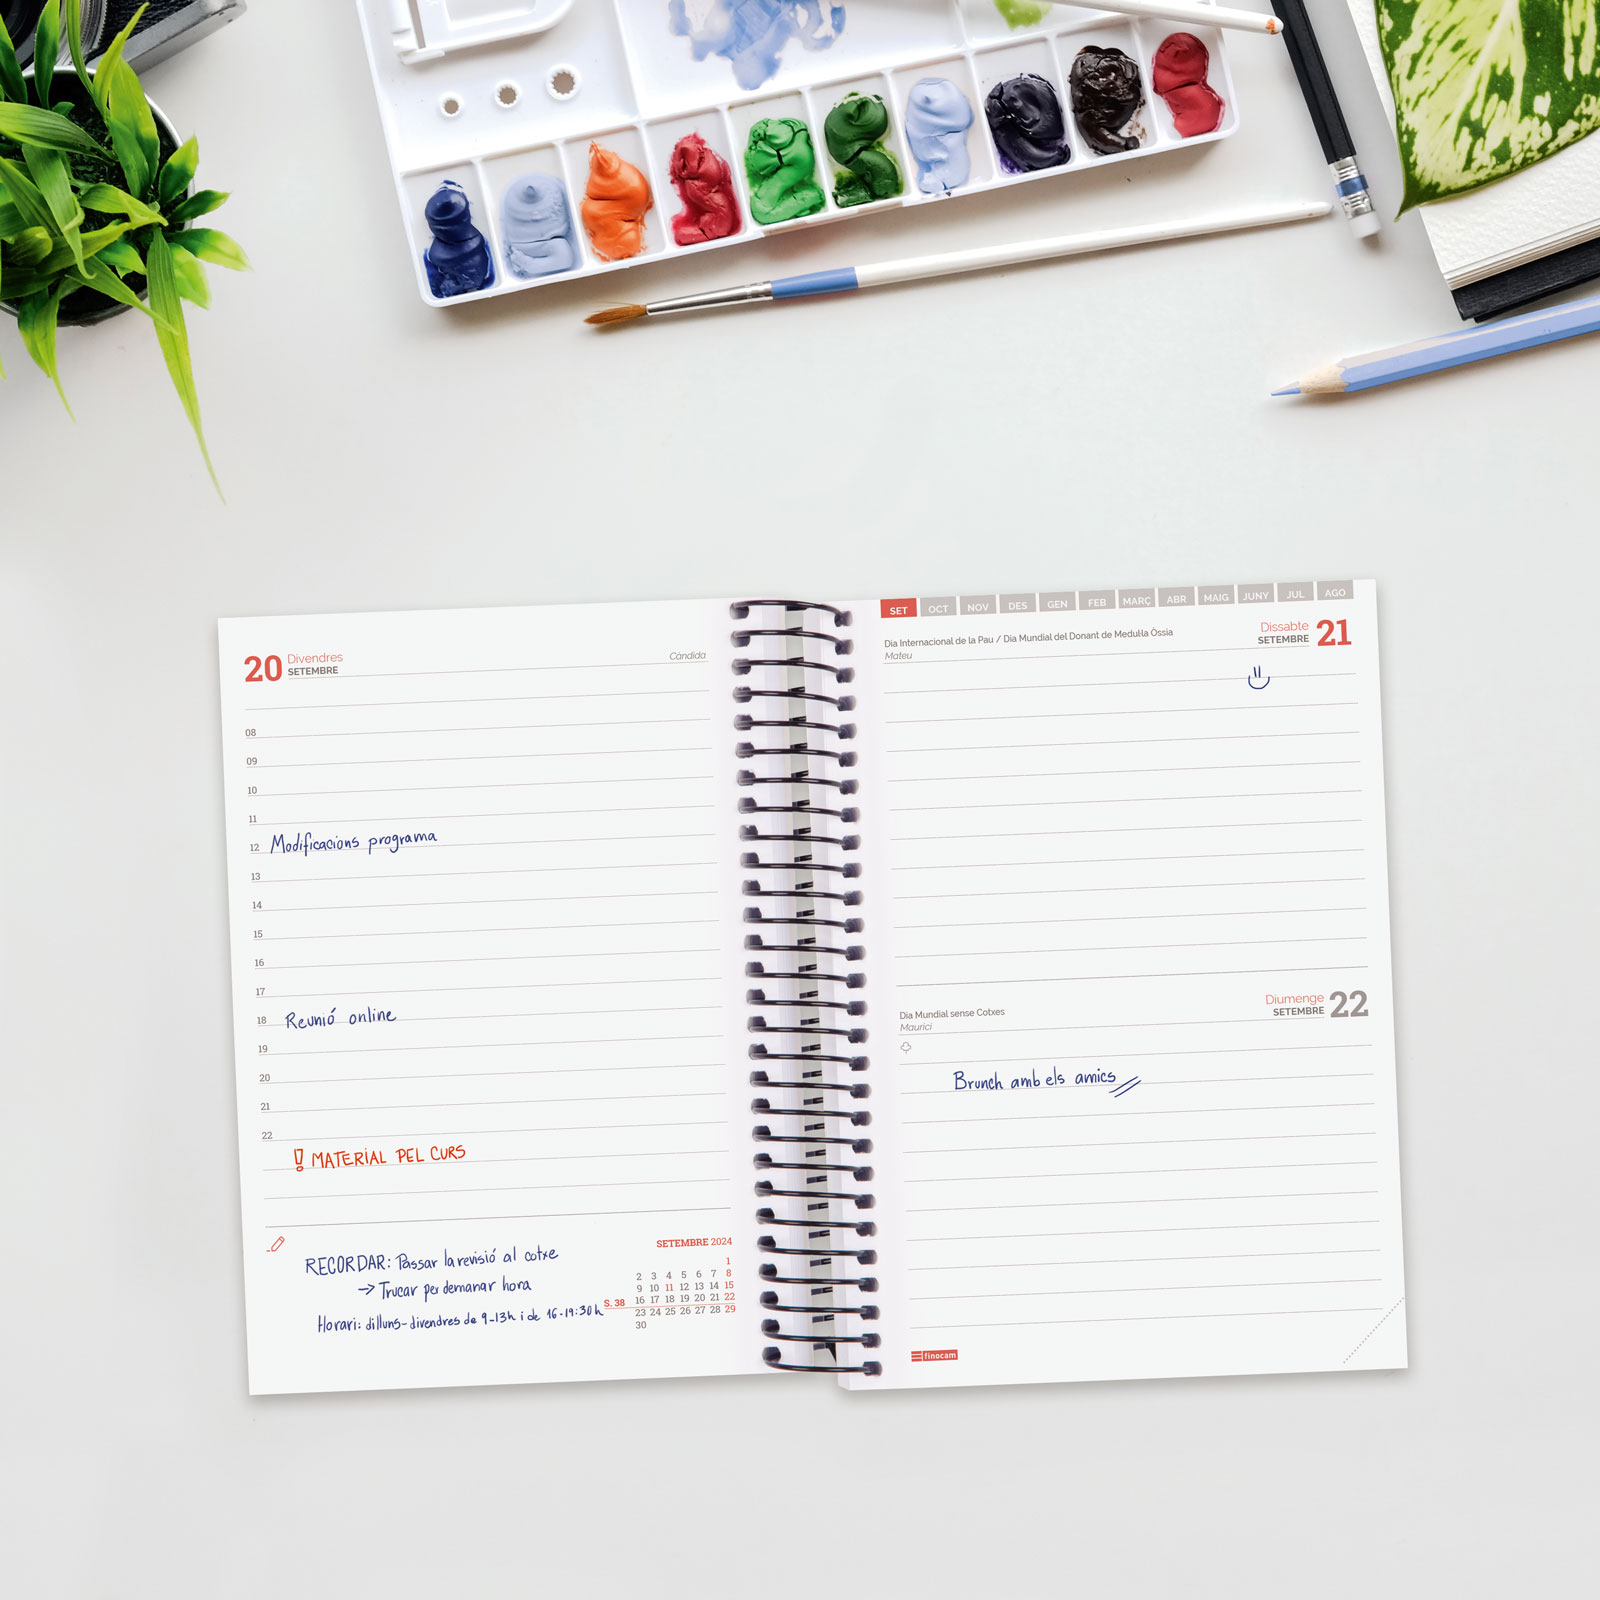 20 Divendres
SETEMBRE
Càndida
08
09
10
11
12 Modificacions programa
13
14
15
16
17
18 Reunió online
19
20
21
22
! MATERIAL PEL CURS
RECORDAR: Passar la revisió al cotxe
→ Trucar per demanar hora
Horari: dilluns-divendres de 9-13h i de 16-19:30h
SETEMBRE 2024
1
2 3 4 5 6 7 8
9 10 11 12 13 14 15
S. 38 16 17 18 19 20 21 22
23 24 25 26 27 28 29
30
SET OCT NOV DES GEN FEB MARÇ ABR MAIG JUNY JUL AGO
Dia Internacional de la Pau / Dia Mundial del Donant de Medul·la Òssia
Mateu
Dissabte 21
SETEMBRE
Dia Mundial sense Cotxes
Maurici
Diumenge 22
SETEMBRE
Brunch amb els amics
finocam